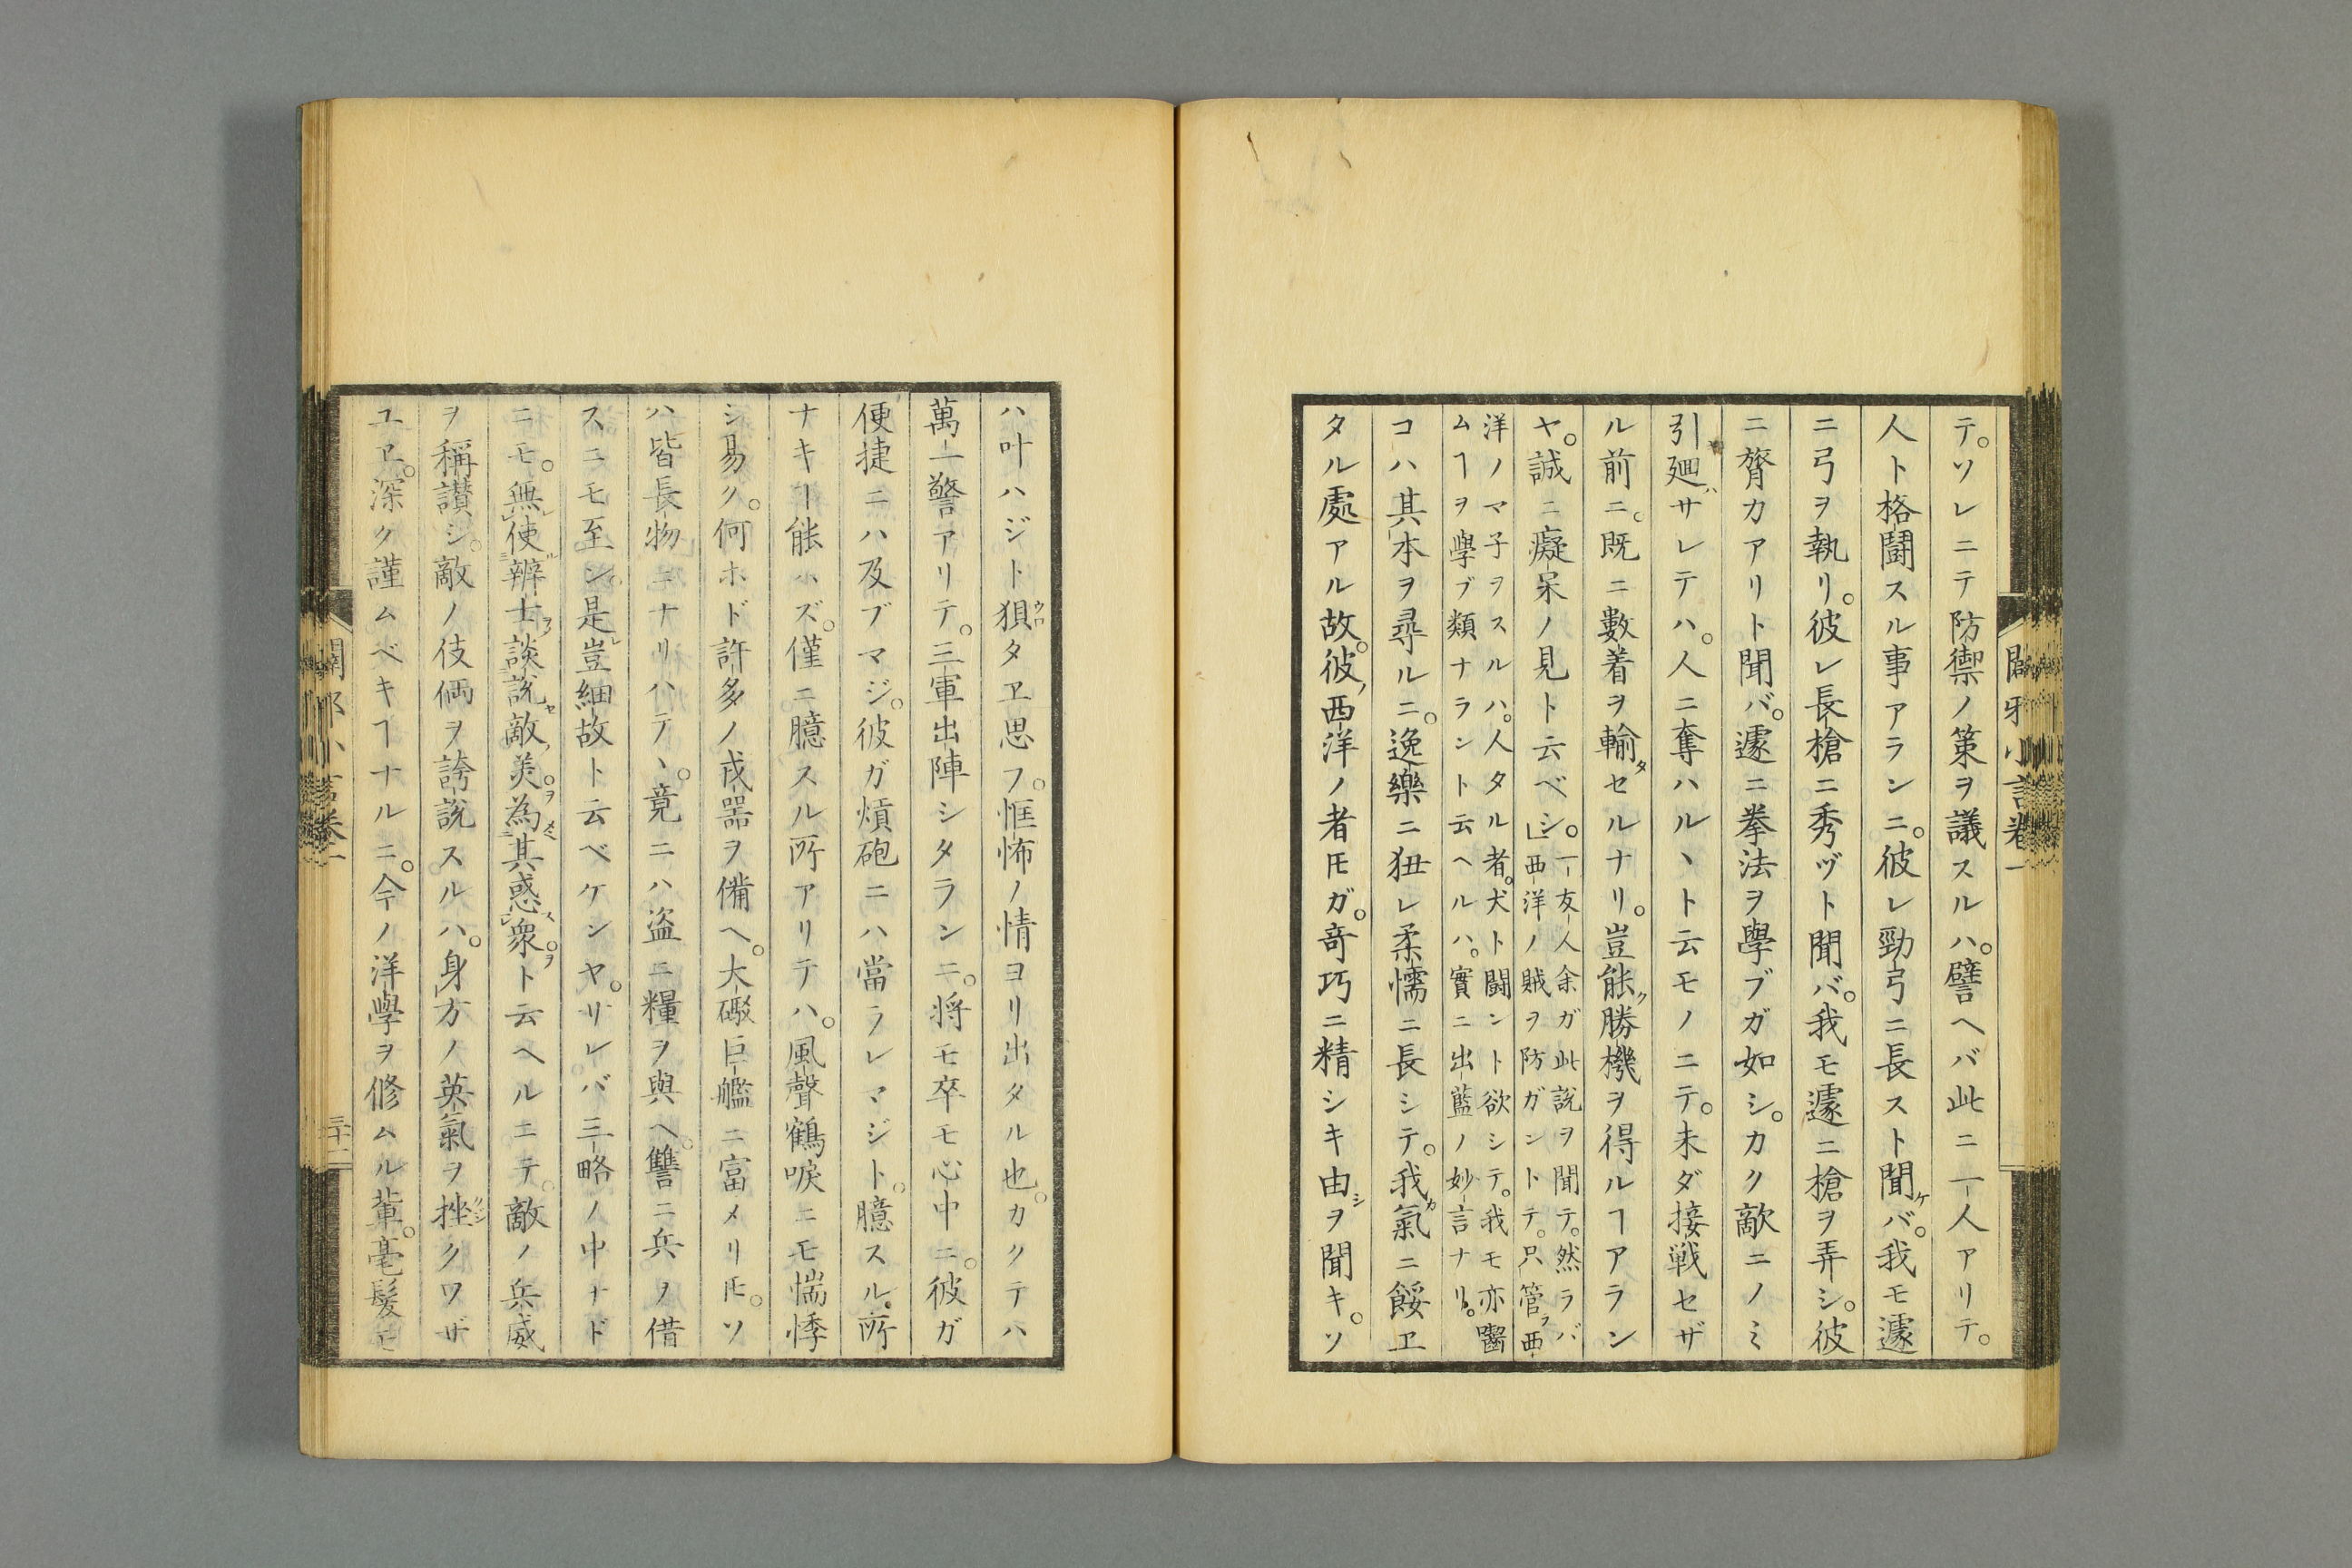 テ。ソレニテ防禦ノ策ヲ議スルハ。譬ヘバ此ニ一人アリテ。
人ト格闘スル事アランニ。彼レ勁弓ニ長スト聞ケバ。我モ遽
ニ弓ヲ執リ。彼レ長槍ニ秀ヅト聞バ。我モ遽ニ槍ヲ弄シ。彼
ニ膂力アリト聞バ。遽ニ拳法ヲ學ブガ如シ。カク敵ニノミ
引廻サレテハ。人ニ奪ハルヽト云モノニテ。未ダ接戦セザ
ル前ニ。既ニ數着ヲ輸セルナリ。豈能勝機ヲ得ルヿアラン
ヤ。誠ニ癡呆ノ見ト云ベシ。
一友人余ガ此説ヲ聞テ。然ラバ
西洋ノ賊ヲ防ガントテ。只管西
洋ノマ子ヲスルハ。人タル者。犬ト闘ント欲シテ。我モ亦齧
ムヿヲ學ブ類ナラント云ヘルハ。實ニ出藍ノ妙言ナリ。
コハ其本ヲ尋ルニ。逸樂ニ狃レ柔懦ニ長シテ。我氣ニ餒ヱ
タル處アル故。彼西洋ノ者𪜈ガ。奇巧ニ精シキ由ヲ聞キ。ソ
闢邪小言卷一
ハ叶ハジト狽タヱ思フ。恇怖ノ情ヨリ出タル也。カクテハ
萬一警アリテ。三軍出陣シタランニ。将モ卒モ心中ニ。彼ガ
便捷ニハ及ブマジ。彼ガ熕砲ニハ當ラレマジト。臆スル所
ナキヿ能ハズ。僅ニ臆スル所アリテハ。風聲鶴唳ニモ惴悸
シ易ク。何ホド許多ノ戎器ヲ備ヘ。大礮巨艦ニ富メリ𪜈。ソ
ハ皆長物ニナリハテヽ。竟ニハ盗ニ糧ヲ與ヘ。讐ニ兵ヲ借
スニモ至ン。是豈細故ト云ベケンヤ。サレバ三略ノ中ナド
ニモ。無使辨士談説敵美。為其惑衆。ト云ヘルニテ。敵ノ兵威
ヲ稱讃シ。敵ノ伎倆ヲ誇説スルハ。身方ノ英氣ヲ挫クワザ
ユヱ。深ク謹ムベキヿナルニ。今ノ洋學ヲ修ムル輩。毫髮モ
闢邪小言卷一